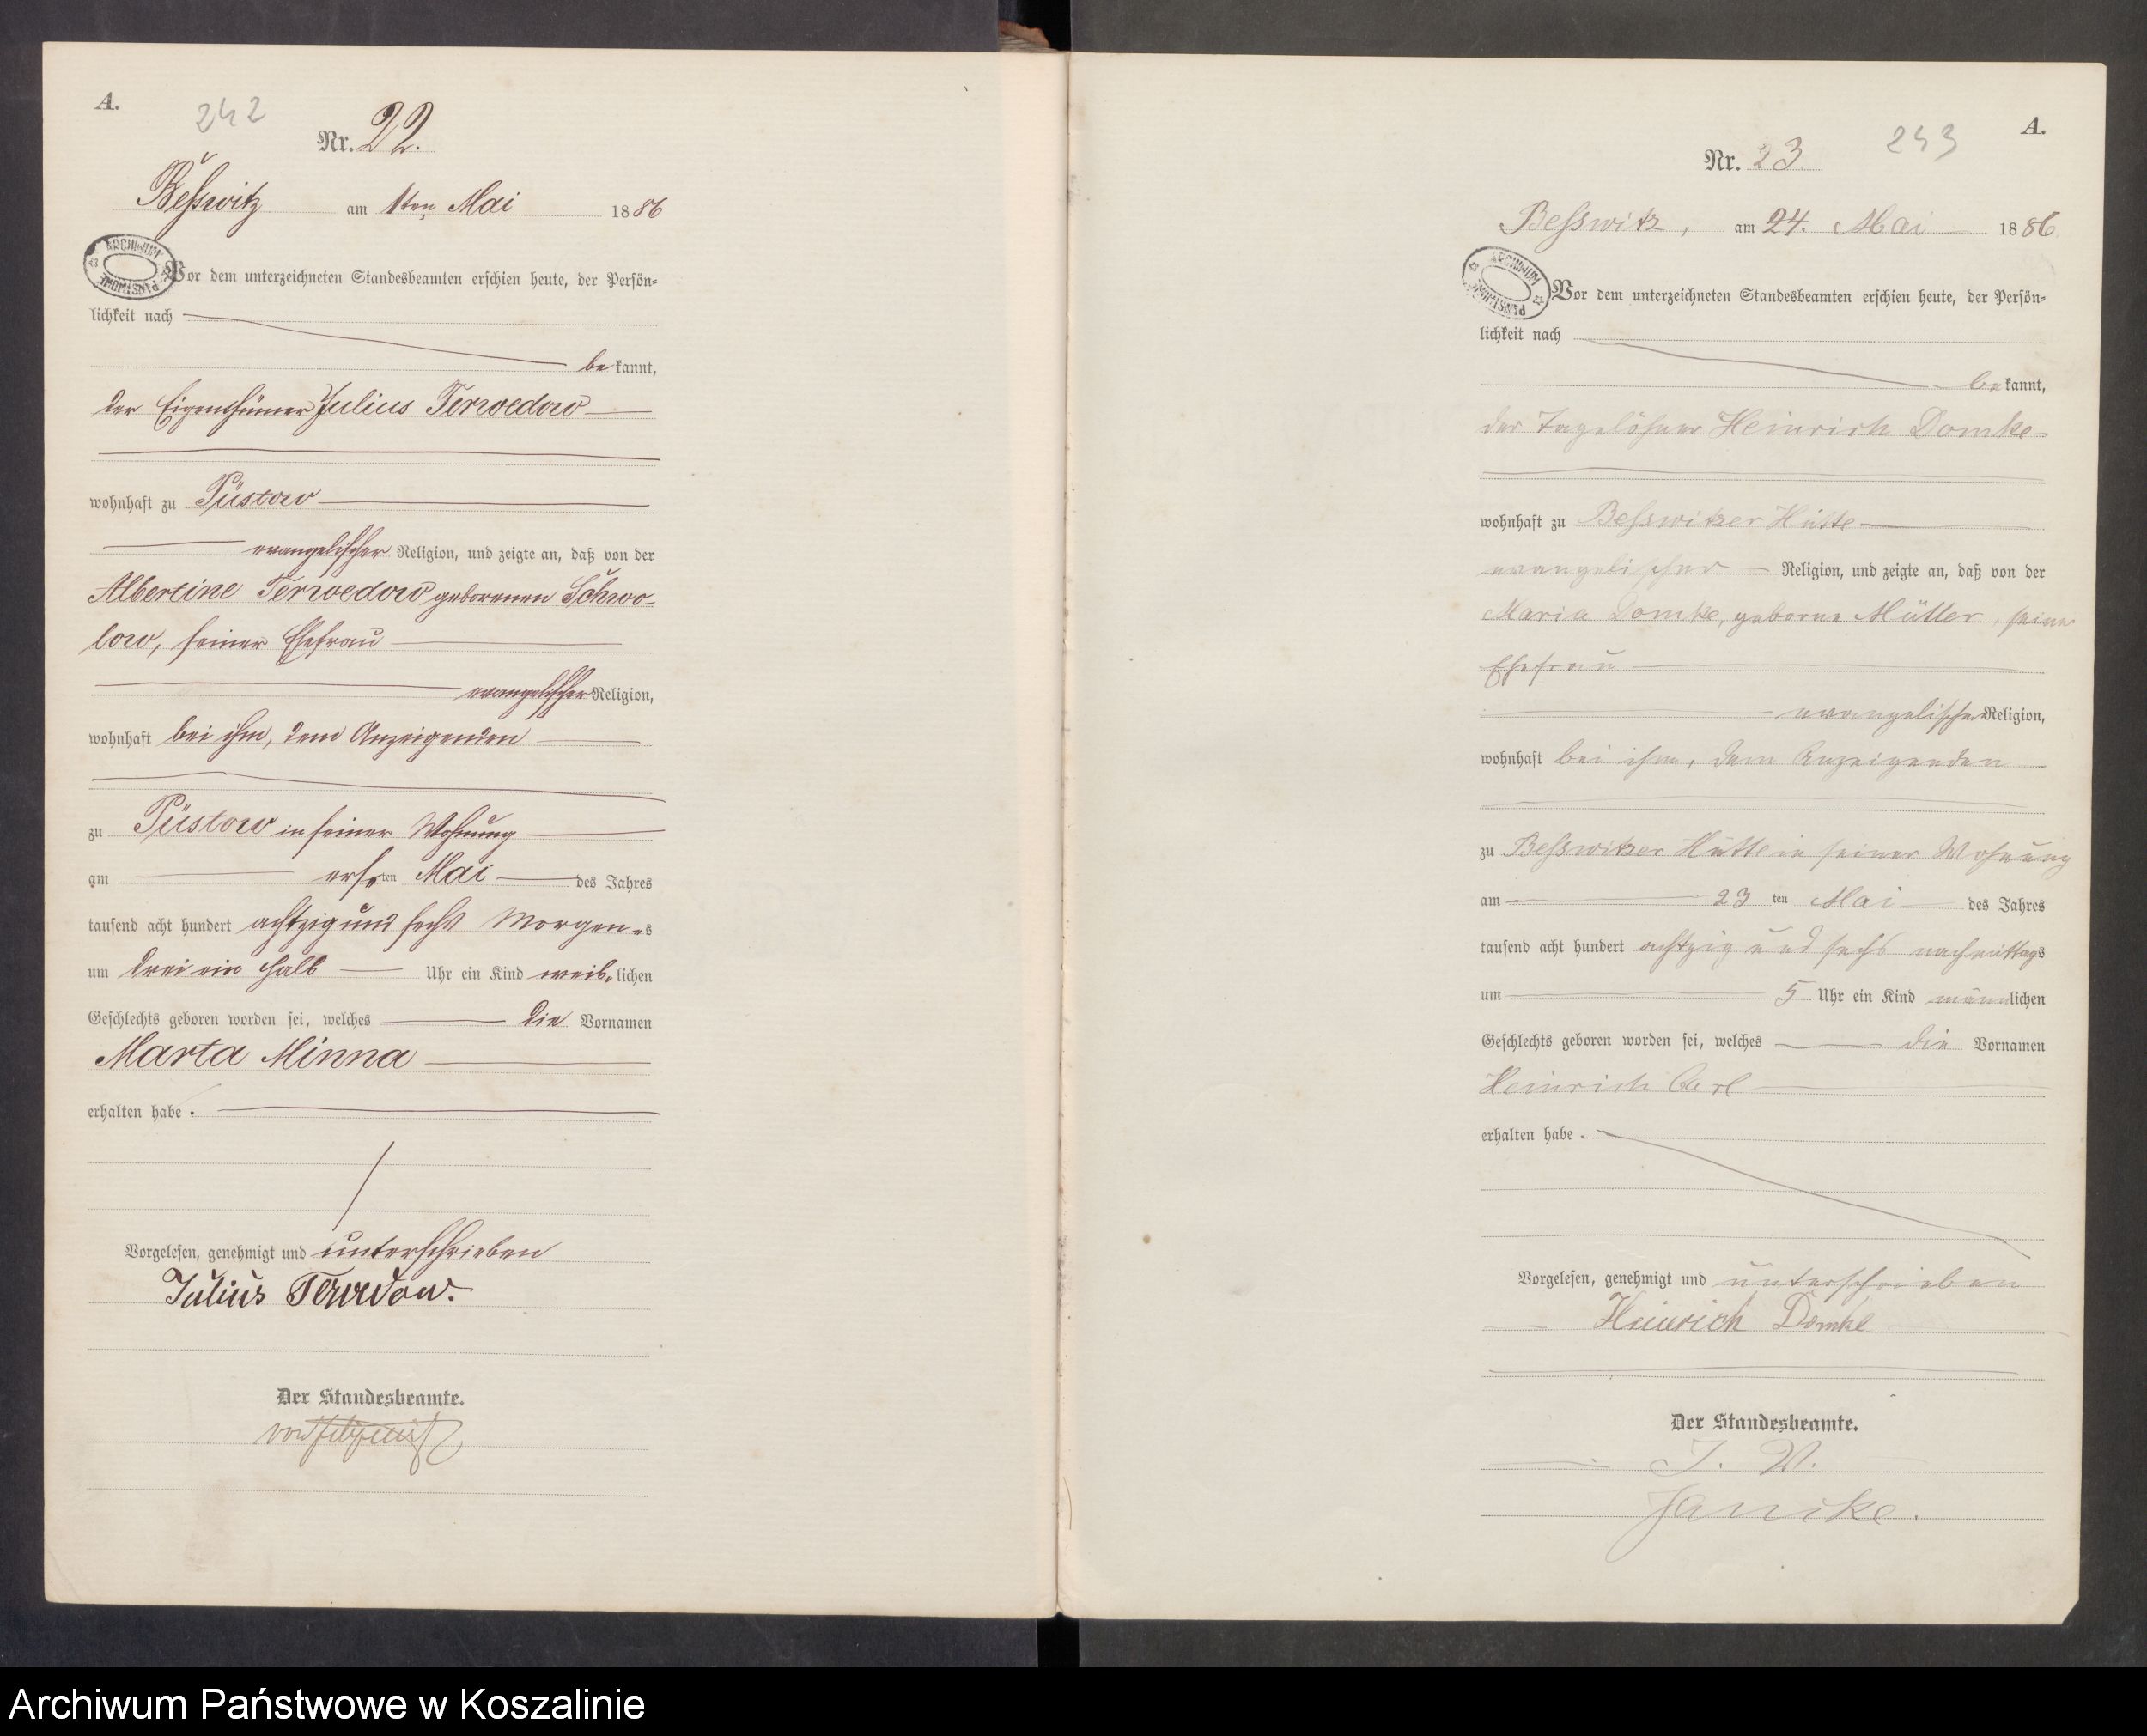 A.
242
Nr. 22.
Beßwitz am 1ten Mai 1886
ARCHIWUM PAŃSTWOWE
Vor dem unterzeichneten Standesbeamten erschien heute, der Persön=
lichkeit nach
bekannt,
der Eigenthümer Julius Terwedow
wohnhaft zu Püstow
evangelischer Religion, und zeigte an, daß von der
Albertine Terwedow geborenen Schwo-
low, seiner Ehefrau
evangelischer Religion,
wohnhaft bei ihm, dem Anzeigenden
zu Püstow in seiner Wohnung
am ersten Mai des Jahres
tausend acht hundert achtzig und sechs Morgens
um drei ein halb Uhr ein Kind weiblichen
Geschlechts geboren worden sei, welches die Vornamen
Marta Minna
erhalten habe.
Vorgelesen, genehmigt und unterschrieben
Julius Terwedow.
Der Standesbeamte.
A.
243
Nr. 23.
Beßwitz, am 24. Mai 1886
ARCHIWUM PAŃSTWOWE
Vor dem unterzeichneten Standesbeamten erschien heute, der Persön=
lichkeit nach
bekannt,
der Tagelöhner Heinrich Domke
wohnhaft zu Beßwitzer Hütte
evangelischer Religion, und zeigte an, daß von der
Maria Domke, geborne Müller, seine
Ehefrau
evangelischer Religion,
wohnhaft bei ihm, dem Anzeigenden
zu Beßwitzer Hütte in seiner Wohnung
am 23 ten Mai des Jahres
tausend acht hundert achtzig und sechs nachmittags
um 5 Uhr ein Kind männlichen
Geschlechts geboren worden sei, welches die Vornamen
Heinrich Carl
erhalten habe.
Vorgelesen, genehmigt und unterschrieben
Heinrich Domke
Der Standesbeamte.
J. V.
Janike.
Archiwum Państwowe w Koszalinie